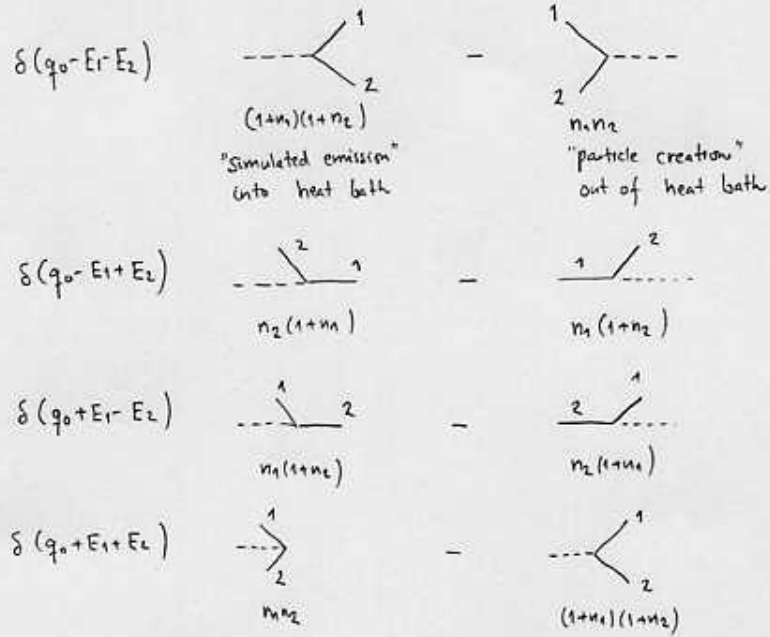 δ(q₀-E₁-E₂)
1
2
-
1
2
(1+n₁)(1+n₂)
n₁n₂
"Simulated emission"
into heat bath
"particle creation"
out of heat bath
δ(q₀-E₁+E₂)
2
1
-
1
2
n₂(1+n₁)
n₁(1+n₂)
δ(q₀+E₁-E₂)
1
2
-
2
1
n₁(1+n₂)
n₂(1+n₁)
δ(q₀+E₁+E₂)
1
2
-
1
2
n₁n₂
(1+n₁)(1+n₂)